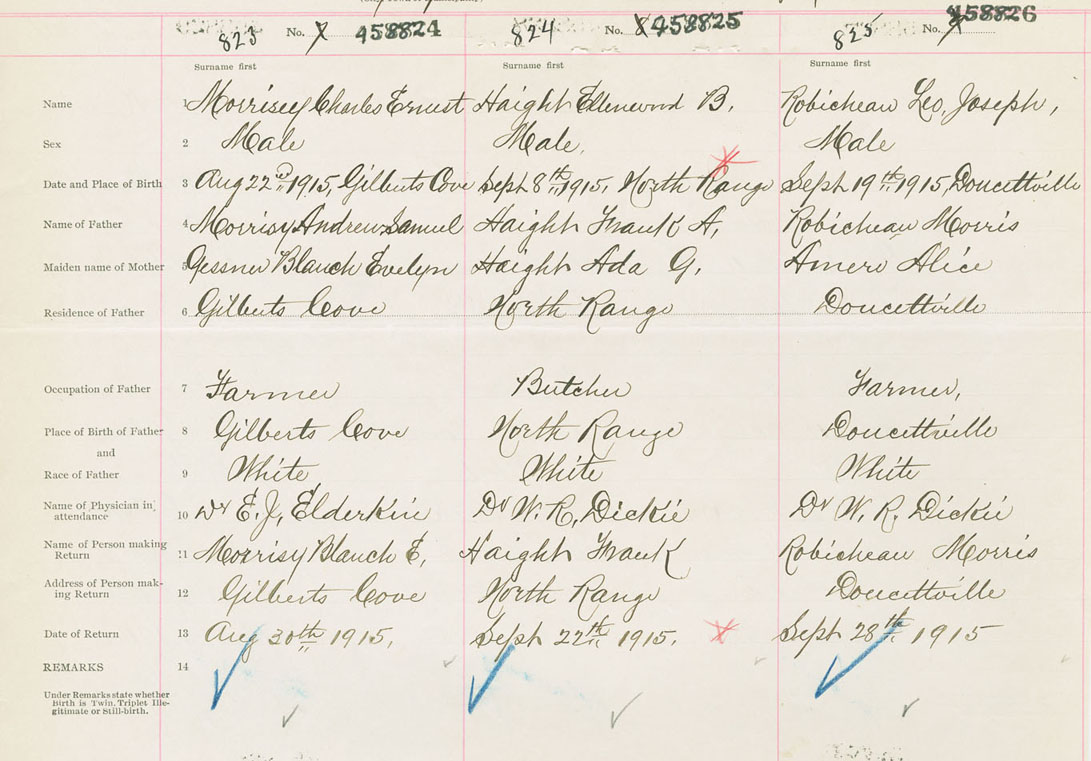 823 No. X 458824 824 No. X 458825 825 No. X 458826
Surname first Surname first Surname first
Name 1 Morrisey Charles Ernest Haight Ellenwood B. Robicheau Leo, Joseph,
Sex 2 Male Male, Male
Date and Place of Birth 3 Aug 22nd 1915, Gilberts Cove Sept 8th 1915, North Range Sept 19th 1915, Doucettville
Name of Father 4 Morrisy Andrew Samuel Haight Frank A, Robicheau Morris
Maiden name of Mother 5 Gessner Blanch Evelyn Haight Ada G. Amero Alice
Residence of Father 6 Gilberts Cove North Range Doucettville
Occupation of Father 7 Farmer Butcher Farmer,
Place of Birth of Father 8 Gilberts Cove North Range Doucettville
and
Race of Father 9 White White White
Name of Physician in
attendance 10 Dr E. J, Elderkin Dr W. R, Dickie Dr W. R, Dickie
Name of Person making
Return 11 Morrisy Blanch E, Haight Frank Robicheau Morris
Address of Person mak-
ing Return 12 Gilberts Cove North Range Doucettville
Date of Return 13 Aug 30th 1915, Sept 22th 1915. Sept 28th 1915
REMARKS 14
Under Remarks state whether
Birth is Twin, Triplet Ille-
gitimate or Still-birth.